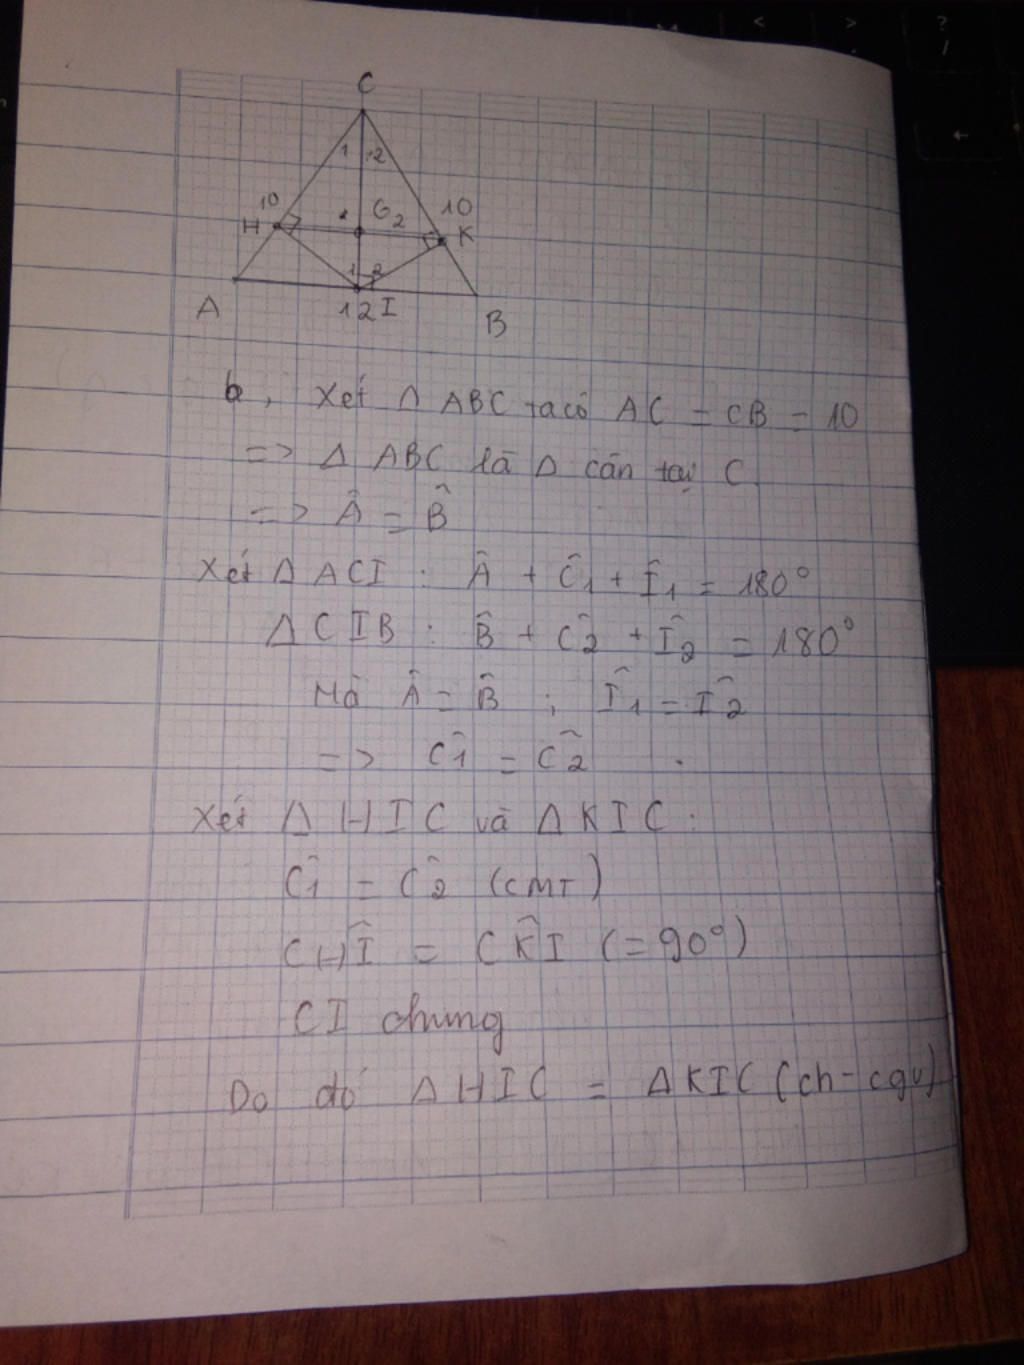 C
1 2
10 10
H G 2 K
1 2
A 12 I B
b, Xét Δ ABC ta có AC = CB = 10
=> Δ ABC là Δ cân tại C
=> Â = B̂
Xét Δ ACI : Â + Ĉ1 + Î1 = 180°
Δ CIB : B̂ + Ĉ2 + Î2 = 180°
Mà Â = B̂ ; Î1 = Î2
=> Ĉ1 = Ĉ2 .
Xét Δ HIC và Δ KIC :
Ĉ1 = Ĉ2 (CMT)
CHÎ = CK̂I (= 90°)
CI chung
Do đó Δ HIC = Δ KIC (ch - cgv)